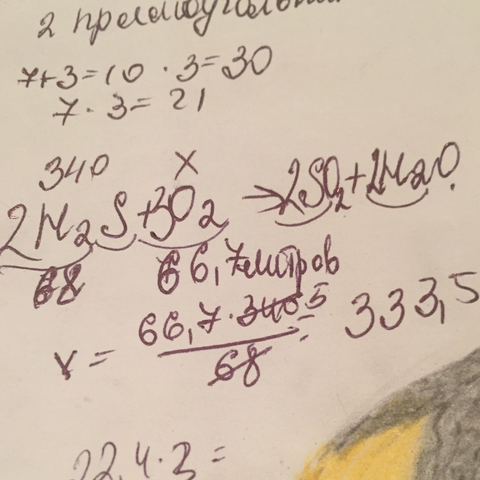 2
7+3=10 · 3=30
7 · 3= 21
340 X
2H₂S+3O₂ → 2SO₂+2H₂O
68 66,7литров
x = 66,7 · 340 5 / 68 = 333,5
22,4 · 3 =